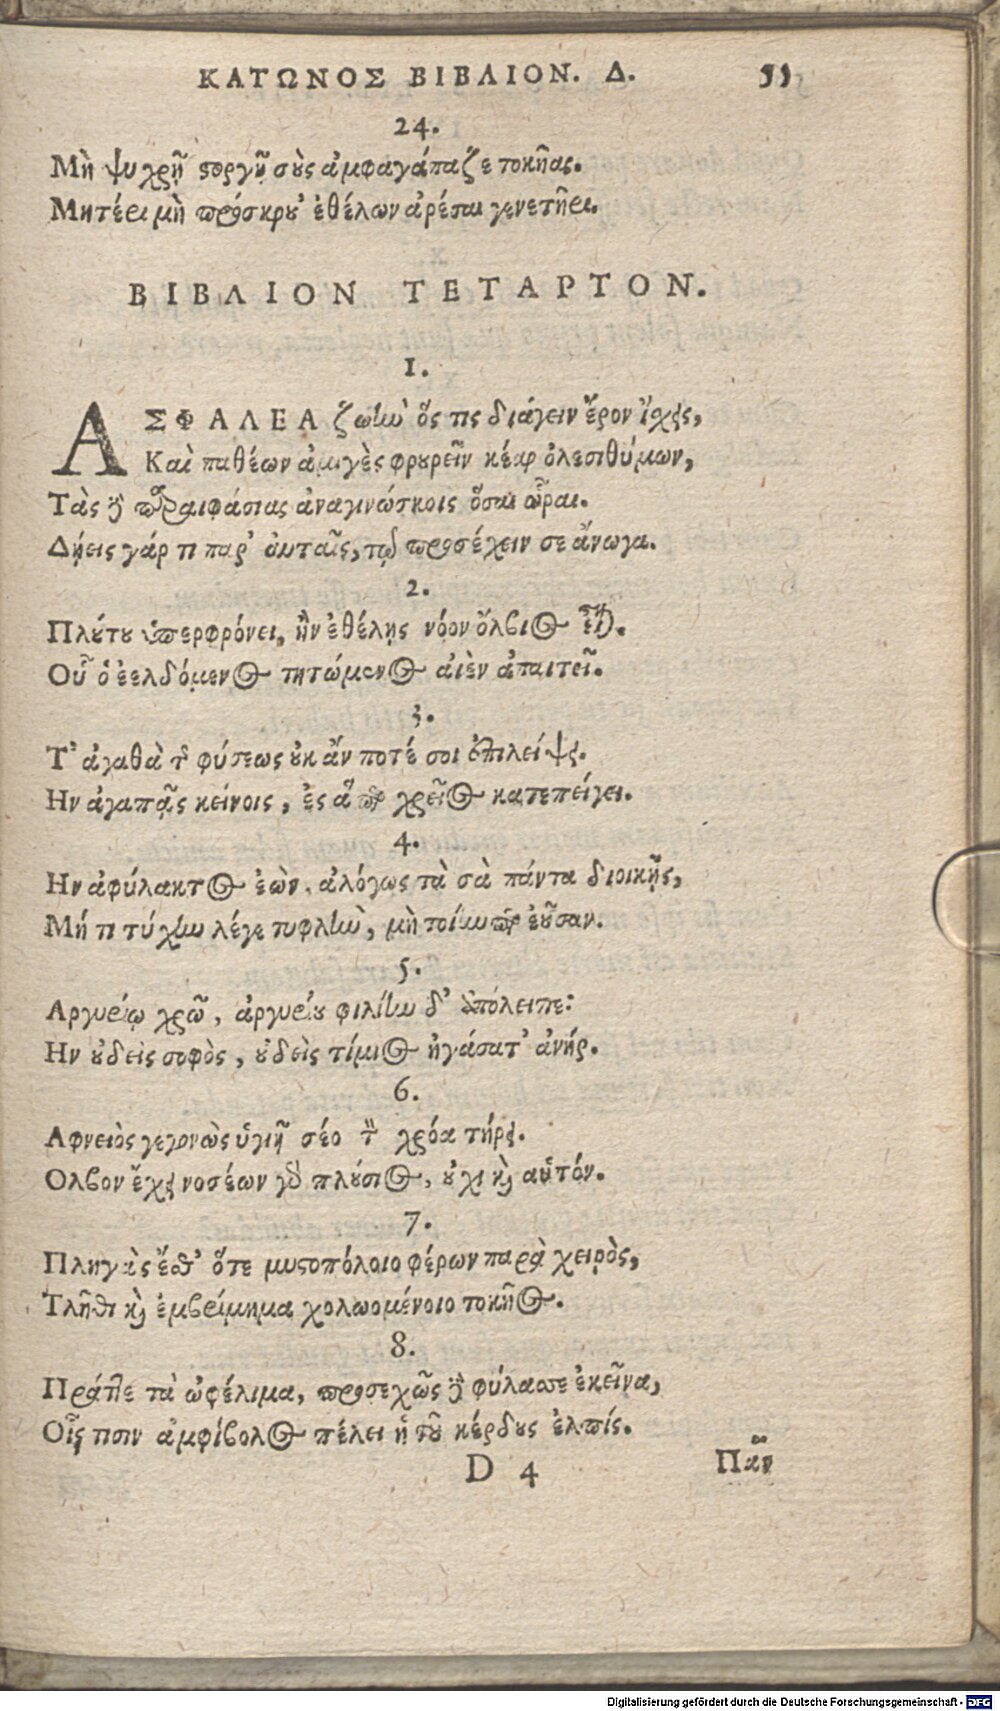 ΚΑΤΩΝΟΣ ΒΙΒΛΙΟΝ. Δ. 55
24.
Μὴ ψυχρῇ ϛοργῇ σοὺς ἀμφαγάπαζε τοκῆας.
Μητέρι μὴ πρόσκρου' ἐθέλων ἀρέσαι γενετῆρι.
ΒΙΒΛΙΟΝ ΤΕΤΑΡΤΟΝ.
1.
ΑΣΦΑΛΕΑ ζωὴν ὅς τις διάγειν ἔρον ἴχεις,
Καὶ παθέων ἀμιγὲς φρουρεῖν κέαρ ὀλεσιθύμων,
Τὰς δὲ παραιφάσιας ἀναγινώσκοις ὅσαι ὧραι.
Δήεις γάρ τι παρ' αὐταῖς, τῷ προσέχειν σε ἄνωγα.
2.
Πλούτου ὑπερφρόνει, ἢν ἐθέλῃς νόον ὄλβιος εἶναι.
Οὗ ὁ ἐελδόμενος τητώμενος αἰὲν ἀπαιτεῖ.
3.
Τ' ἀγαθὰ τῆς φύσεως οὐκ ἄν ποτέ σοι ἐπιλείψει.
Ην ἀγαπᾷς κείνοις, ἐς ἅ περ χρεῖος κατεπείγει.
4.
Ην ἀφύλακτος ἐὼν, ἀλόγως τὰ σὰ πάντα διοικῇς,
Μή τι τύχην λέγε τυφλὴν, μὴ τοίην περ ἐοῦσαν.
5.
Αργυρίῳ χρῶ, ἀργυρίου φιλίην δ' ἀπόλειπε:
Ην οὐδεὶς σοφὸς, οὐδεὶς τίμιος ἠγάσατ' ἀνήρ.
6.
Αφνειὸς γεγονὼς ὑγιῆ σέο τὸν χρόα τήρει.
Ολβον ἔχει νοσέων γὸ πλούσιος, οὐχὶ καὶ αὑτόν.
7.
Πληγὰς ἔσθ' ὅτε μυστοπόλοιο φέρων παρὰ χειρὸς,
Τλῆθι καὶ ἐμβρίμημα χολωομένοιο τοκῆος.
8.
Πράττε τὰ ὠφέλιμα, προσεχῶς δὲ φύλασσε ἐκεῖνα,
Οἷς τισιν ἀμφίβολος πέλει ἡ τοῦ κέρδους ἐλπίς.
D 4 Πᾶν
Digitalisierung gefördert durch die Deutsche Forschungsgemeinschaft - DFG